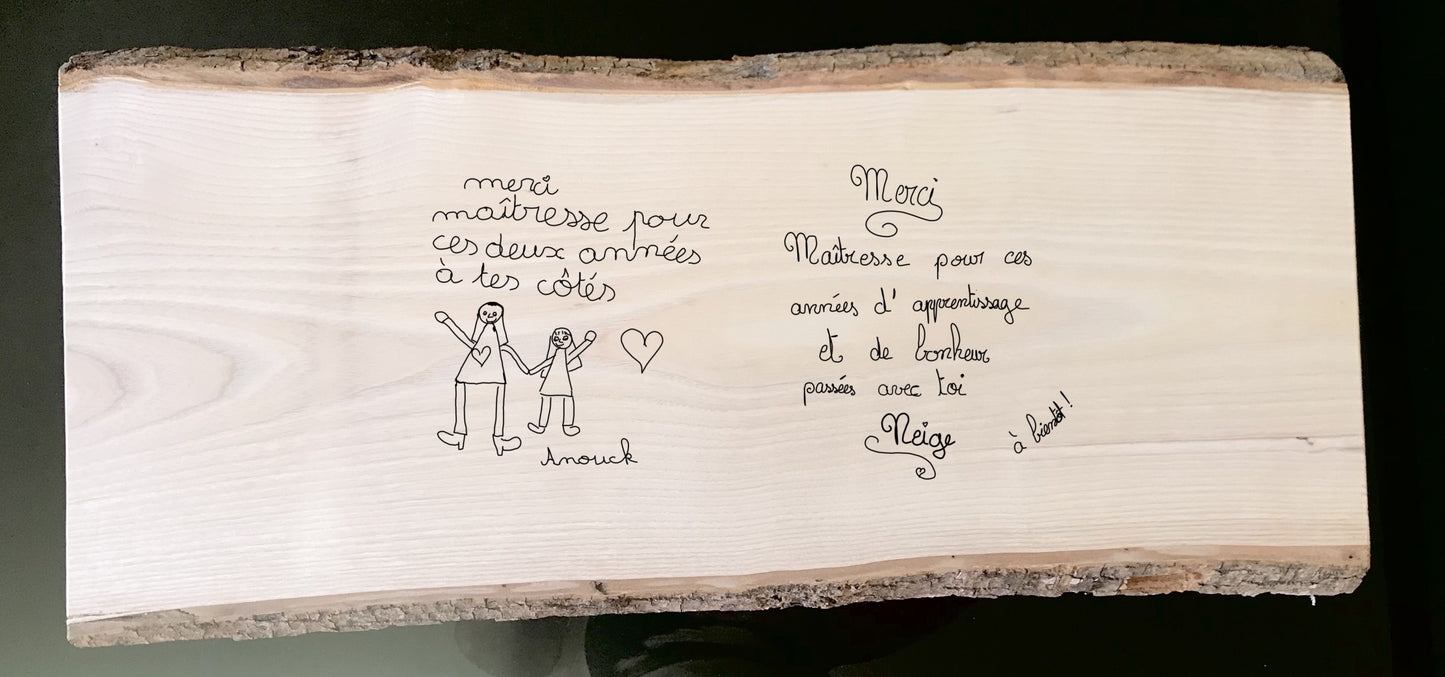 merci
maîtresse pour
ces deux années
à tes côtés
Anouck
Merci
Maîtresse pour ces
années d' apprentissage
et de bonheur
passées avec toi
Neige
à bientôt !